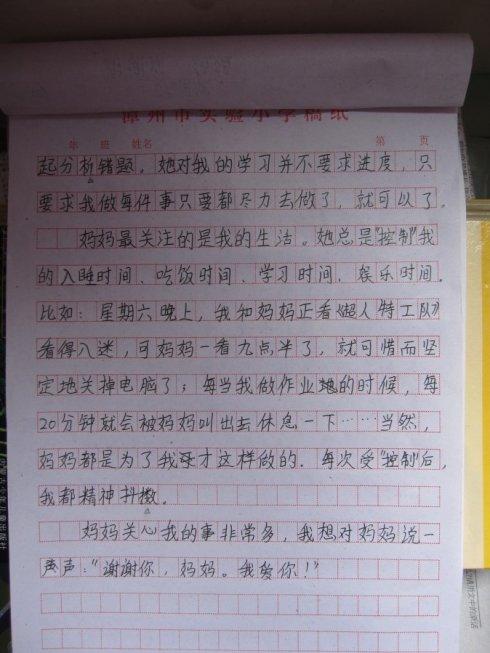 漳州市实验小学稿纸
年 班 姓名 第 页
起分析错题。她对我的学习并不要求进度，只
要求我做每件事只要都尽力去做了，就可以了。
妈妈最关注的是我的生活。她总是"控制"我
的入睡时间、吃饭时间、学习时间、娱乐时间。
比如：星期六晚上，我和妈妈正看《超人特工队》
看得入迷，可妈妈一看九点半了，就可惜而坚
定地关掉电脑了；每当我做作业地的时候，每
20分钟就会被妈妈叫出去休息一下……当然，
妈妈都是为了我好才这样做的。每次受"控制"后，
我都精神抖擞。
妈妈关心我的事非常多，我想对妈妈说一
声声："谢谢你，妈妈。我爱你！"
古少年儿童出版社